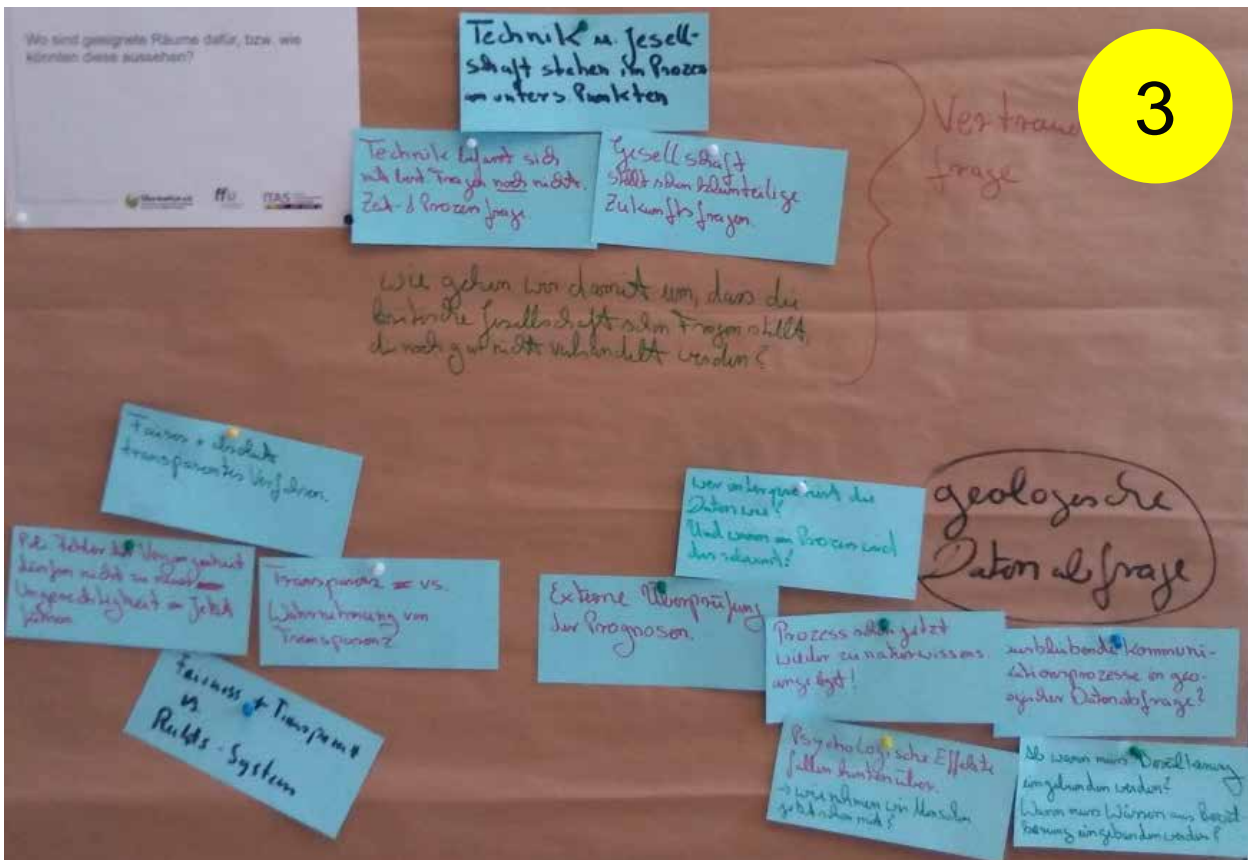 Wo sind geeignete Räume dafür, bzw. wie
könnten diese aussehen?
ffu
ITAS
3
Technik u. Gesell-
schaft stehen im Prozess
an unters. Punkten
Technik befasst sich
mit best. Fragen noch nicht.
Zeit- & Prozessfrage
Gesellschaft
stellt schon kleinteilige
Zukunftsfragen.
Vertrauens
frage
Wie gehen wir damit um, dass die
kritische Gesellschaft schon Fragen stellt,
die noch gar nicht verhandelt werden?
Faires + absolut
transparentes Verfahren.
Pol. Fehler der Vergangenheit
dürfen nicht zu neuer
Ungerechtigkeit im Jetzt
führen
Transparenz vs.
Wahrnehmung von
Transparenz
Fairness + Transparenz
vs
Rechts-System
wer interpretiert die
Daten wie?
Und wann im Prozess wird
das relevant?
geologische
Datenabfrage
Externe Überprüfung
der Prognosen.
Prozess schon jetzt
wieder zu naturwissens
angelegt!
ausbleibende Kommuni-
kationsprozesse in geo-
logischer Datenabfrage?
Psychologische Effekte
fallen hintenüber.
→ wie nehmen wir Menschen
jetzt schon mit?
Ab wann muss Bevölkerung
eingebunden werden?
Wann muss Wissen aus Bevöl-
kerung eingebunden werden?